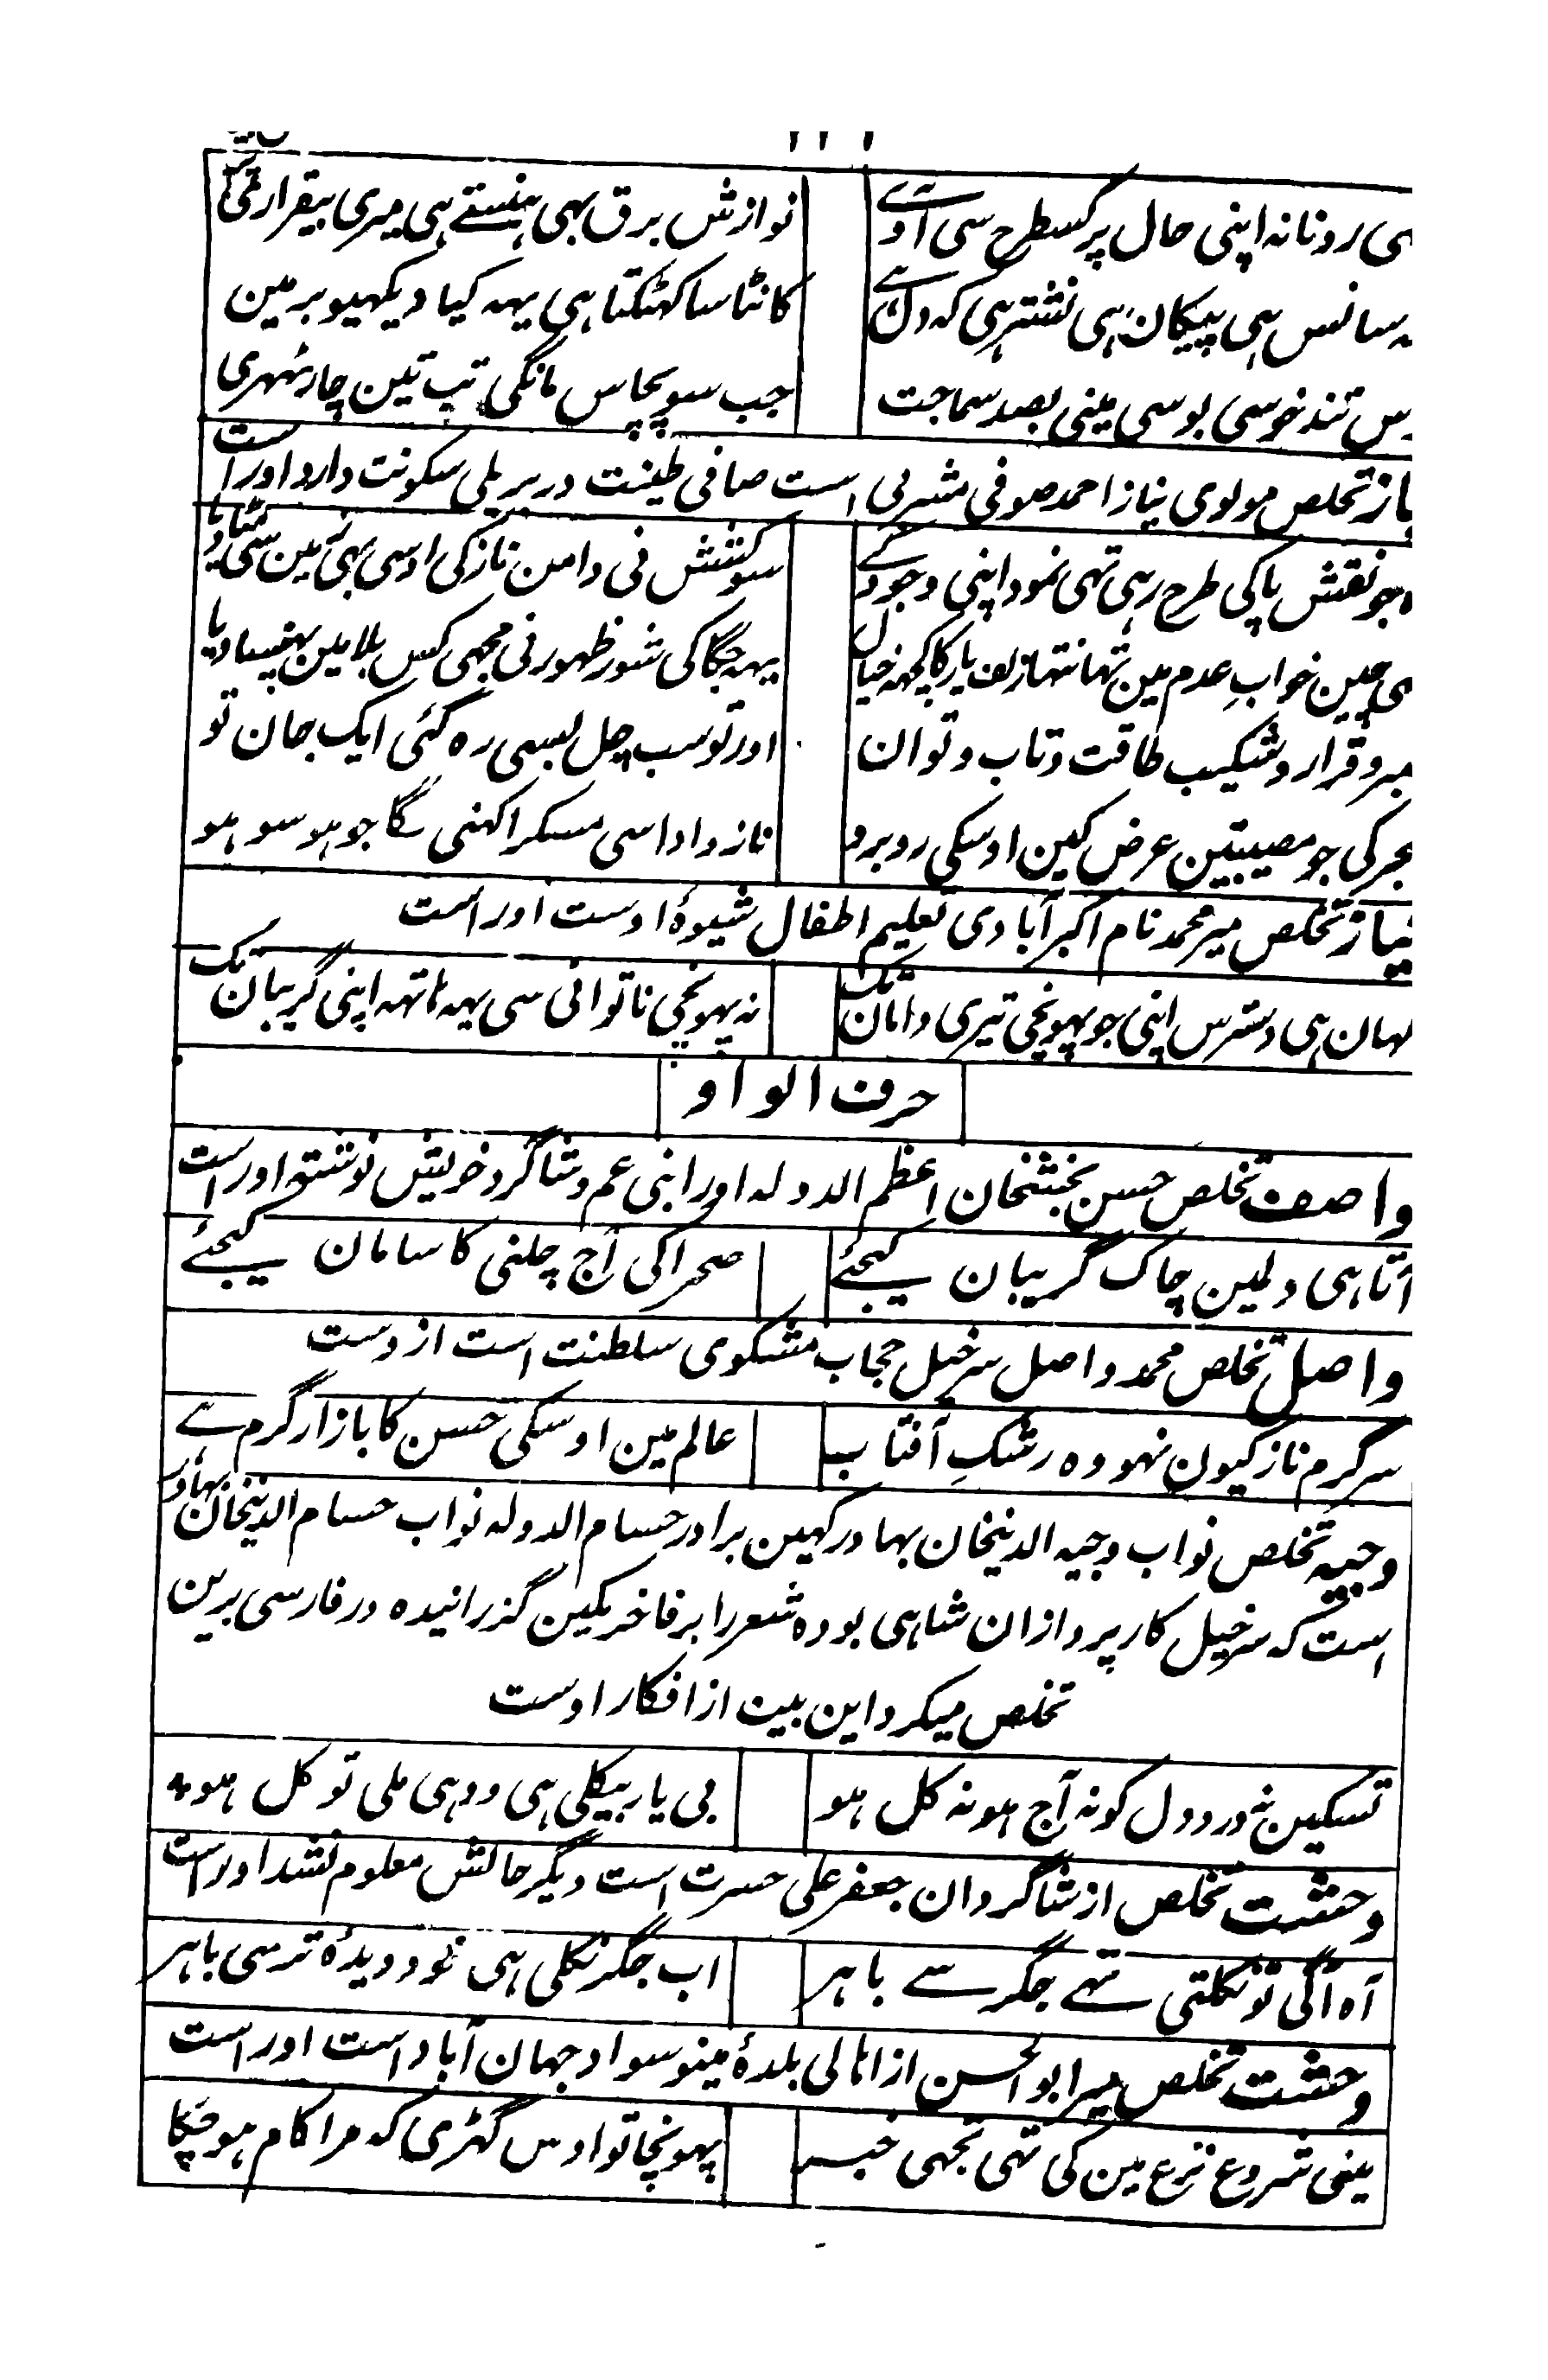 رونا نہ اپنی حال پر کسطرح سی آوے نوازش برق بہی ہنستے ہی میری بیقراری
سانس ہی پیکان ہی نشتر ہی کہ دل کانٹا سا کہٹکتا ہی یہہ کیا دیکہیو بر مین
تند خو سی بوسی مینی بصد سماجت جب سو پچاس مانگی تب تین چار ٹہری
تخلص مولوی نیاز احمد صوفی مشربی است صافی طینت در بریلی سکونت دارد اوراست
جو نقش پا کی طرح رہی تہی نمود اپنی وجود کے سو کشش نی دامن ناز کی اوسی بہی زمین سی مٹا دیا
چین خوابِ عدم مین تہا نتہا زلف یار کا کچہہ خیال یہہ جگا کی شور ظہور نی مجہی کس بلا مین پہنسا دیا
و قرار و شکیب طاقت و تاب و توان اور تو سب چل بسی رہ گئی ایک جان تو
کی جو مصیبتین عرض کین اوسکی روبرو ناز و ادا سی مسکرا کہنی لگا جو ہو سو ہو
نیاز تخلص میر محمد نام اکبر آبادی تعلیم اطفال شیوۂ اوست اوراست
ہی دسترس اپنی جو پہونچی تیری دامان تک نہ پہونچی ناتوانی سی یہہ ہاتہہ اپنی گریبان تک
حرف الواو
واصف تخلص حسن بخشخان اعظم الدولہ اور ابنی عم و شاگرد خویش نوشتہ اوراست
آتا ہی دلمین چاک گریبان کیجئے صحرا کی آج چلنی کا سامان کیجئے
واصل تخلص محمد واصل سرخیل حجاب مشکوی سلطنت است از وست
سرگرم ناز کیون نہو وہ رشکِ آفتاب عالم مین اوسکی حسن کا بازار گرم ہے
وجیہ تخلص نواب وجیہ الدینخان بہادر کہین برادر حسام الدولہ نواب حسام الدینخان بہادر
است کہ سرخیل کارپردازان شاہی بودہ شعر را بر فاخر مکین گذرانیدہ در فارسی برین
تخلص میکرد این بیت از افکار اوست
تسکین درد دل کو نہ آج ہو نہ کل ہو بی یار بیکلی ہی وہ ہی ملی تو کل ہو
وحشت تخلص از شاگردان جعفر علی حسرت است دیگر حالش معلوم نشد اوراست
آہ آگی تو نکلتی تہے جگر سے باہر اب جگر نکلی ہی خود دیدۂ تر سی باہر
وحشت تخلص میر ابو الحسن از اہالی بلدۂ مینو سواد جہان آباد است اوراست
مینی شروع نزع مین کی تہی تجہی خبر پہونچا تو اوس گہڑی کہ مرا کام ہو چکا